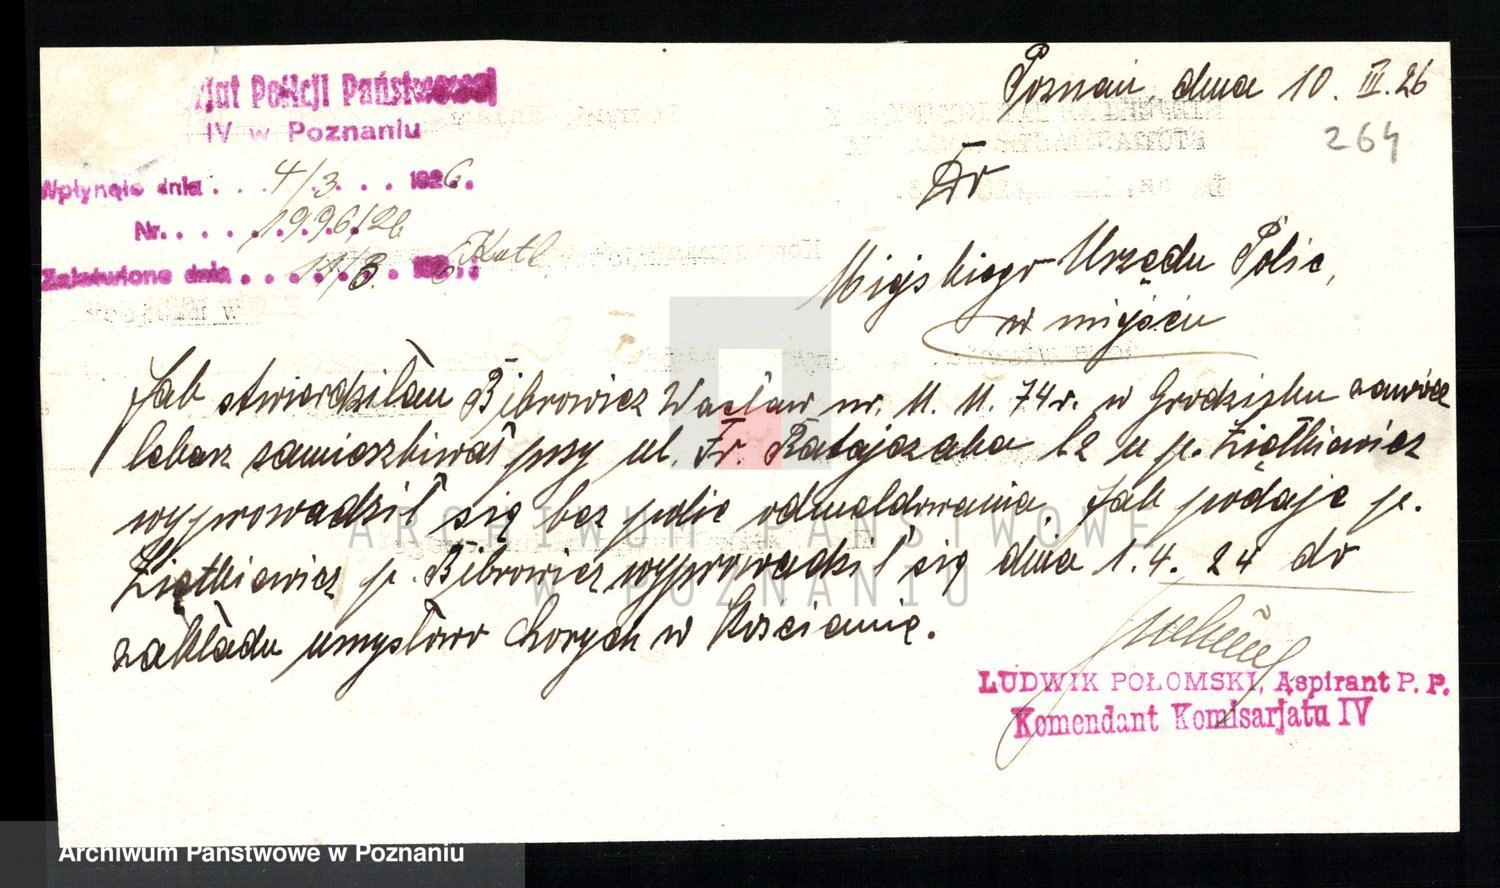 Poznań, dnia 10. III. 26
264
jat Policji Państwowej
IV w Poznaniu
Wpłynęło dnia . . . 4/3 . . . . 1926.
Nr. . . . . 1996/26
Załatwiono dnia . . . . 11/3 . . 1926
Do
Miejskiego Urzędu Polic,
w miejscu
Jak stwierdziłem Bibrowicz Wacław ur. 11. 11. 74 r. w Grodzisku
lekarz zamieszkiwał przy ul. Fr. Ratajczaka 12 u p. Ziętkiewicz
wyprowadził się bez polic odmeldowania. Jak podaje p.
Ziętkiewicz p. Bibrowicz wyprowadził się dnia 1. 4. 24 do
zakładu umysłowo chorych w Kościanie.
LUDWIK POŁOMSKI, Aspirant P. P.
Komendant Komisarjatu IV
ARCHIWUM PAŃSTWOWE
W POZNANIU
Archiwum Państwowe w Poznaniu